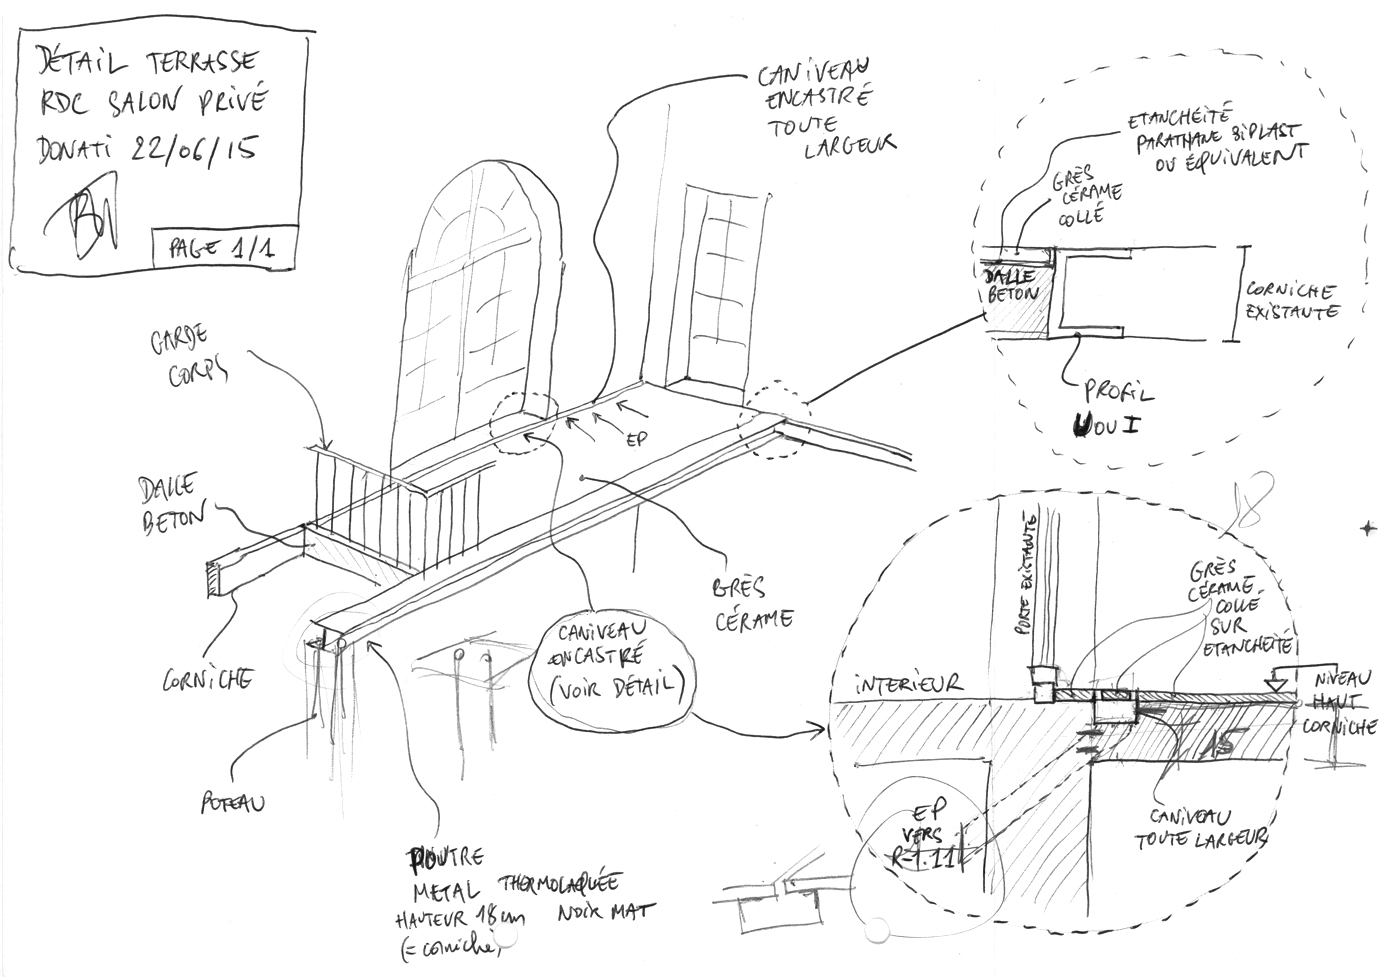 DÉTAIL TERRASSE
RDC SALON PRIVÉ
DONATI 22/06/15
PAGE 1/1
CANIVEAU
ENCASTRÉ
TOUTE
LARGEUR
ETANCHEITÉ
PARATHANE BIPLAST
OU ÉQUIVALENT
GRÈS
CÉRAME
COLLÉ
DALLE
BETON
CORNICHE
EXISTANTE
PROFIL
U OU I
GARDE
CORPS
EP
DALLE
BETON
GRÈS
CÉRAME
CORNICHE
CANIVEAU
ENCASTRÉ
(VOIR DÉTAIL)
POTEAU
POUTRE
METAL THERMOLAQUÉE
HAUTEUR 18cm NOIR MAT
(= corniche)
18
PORTE EXISTANTE
GRÈS
CÉRAME
COLLÉ
SUR
ETANCHEITÉ
INTERIEUR
NIVEAU
HAUT
CORNICHE
15
EP
VERS
R-1.11
CANIVEAU
TOUTE LARGEUR